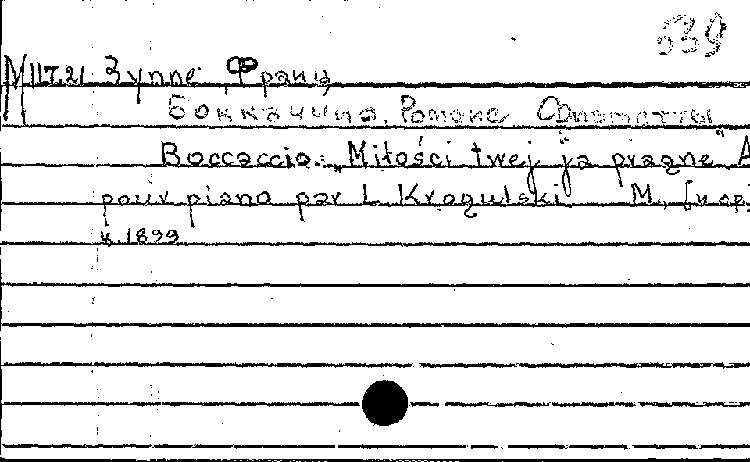 539
М 117.21 Зуппе, Франц
Боккаччио. Романс
Boccaccio. „Miłości twej ja pragnę" A
pour piano par L. Kragulski M.,
к. 1899